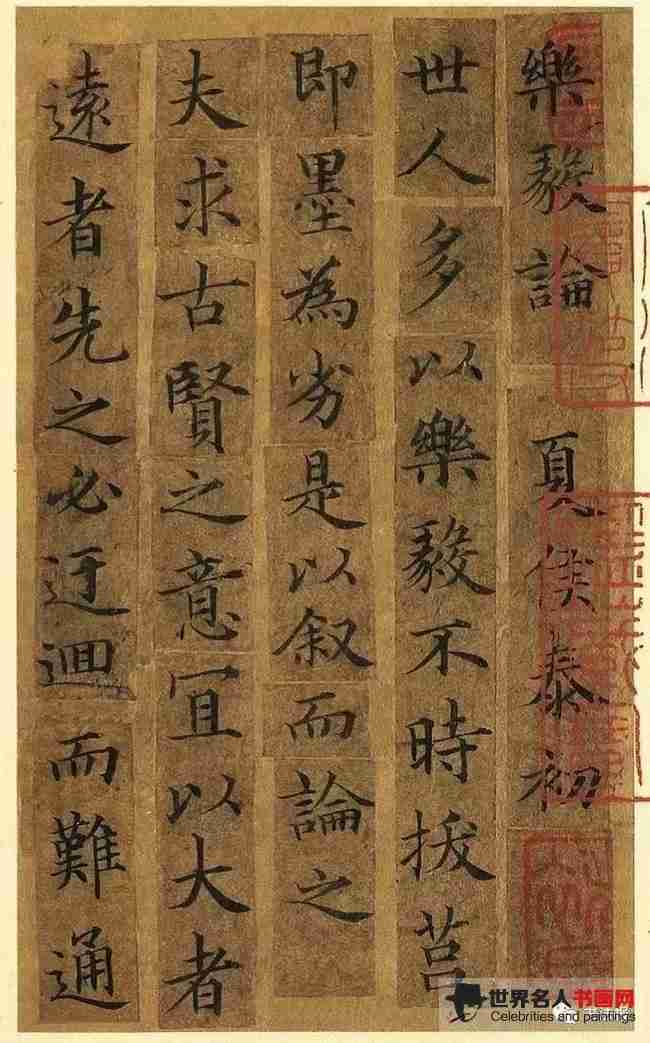 樂毅論 夏侯泰初
世人多以樂毅不時拔莒
即墨為劣是以叙而論之
夫求古賢之意宜以大者
遠者先之必迂迴而難通
世界名人书画网
Celebrities and paintings